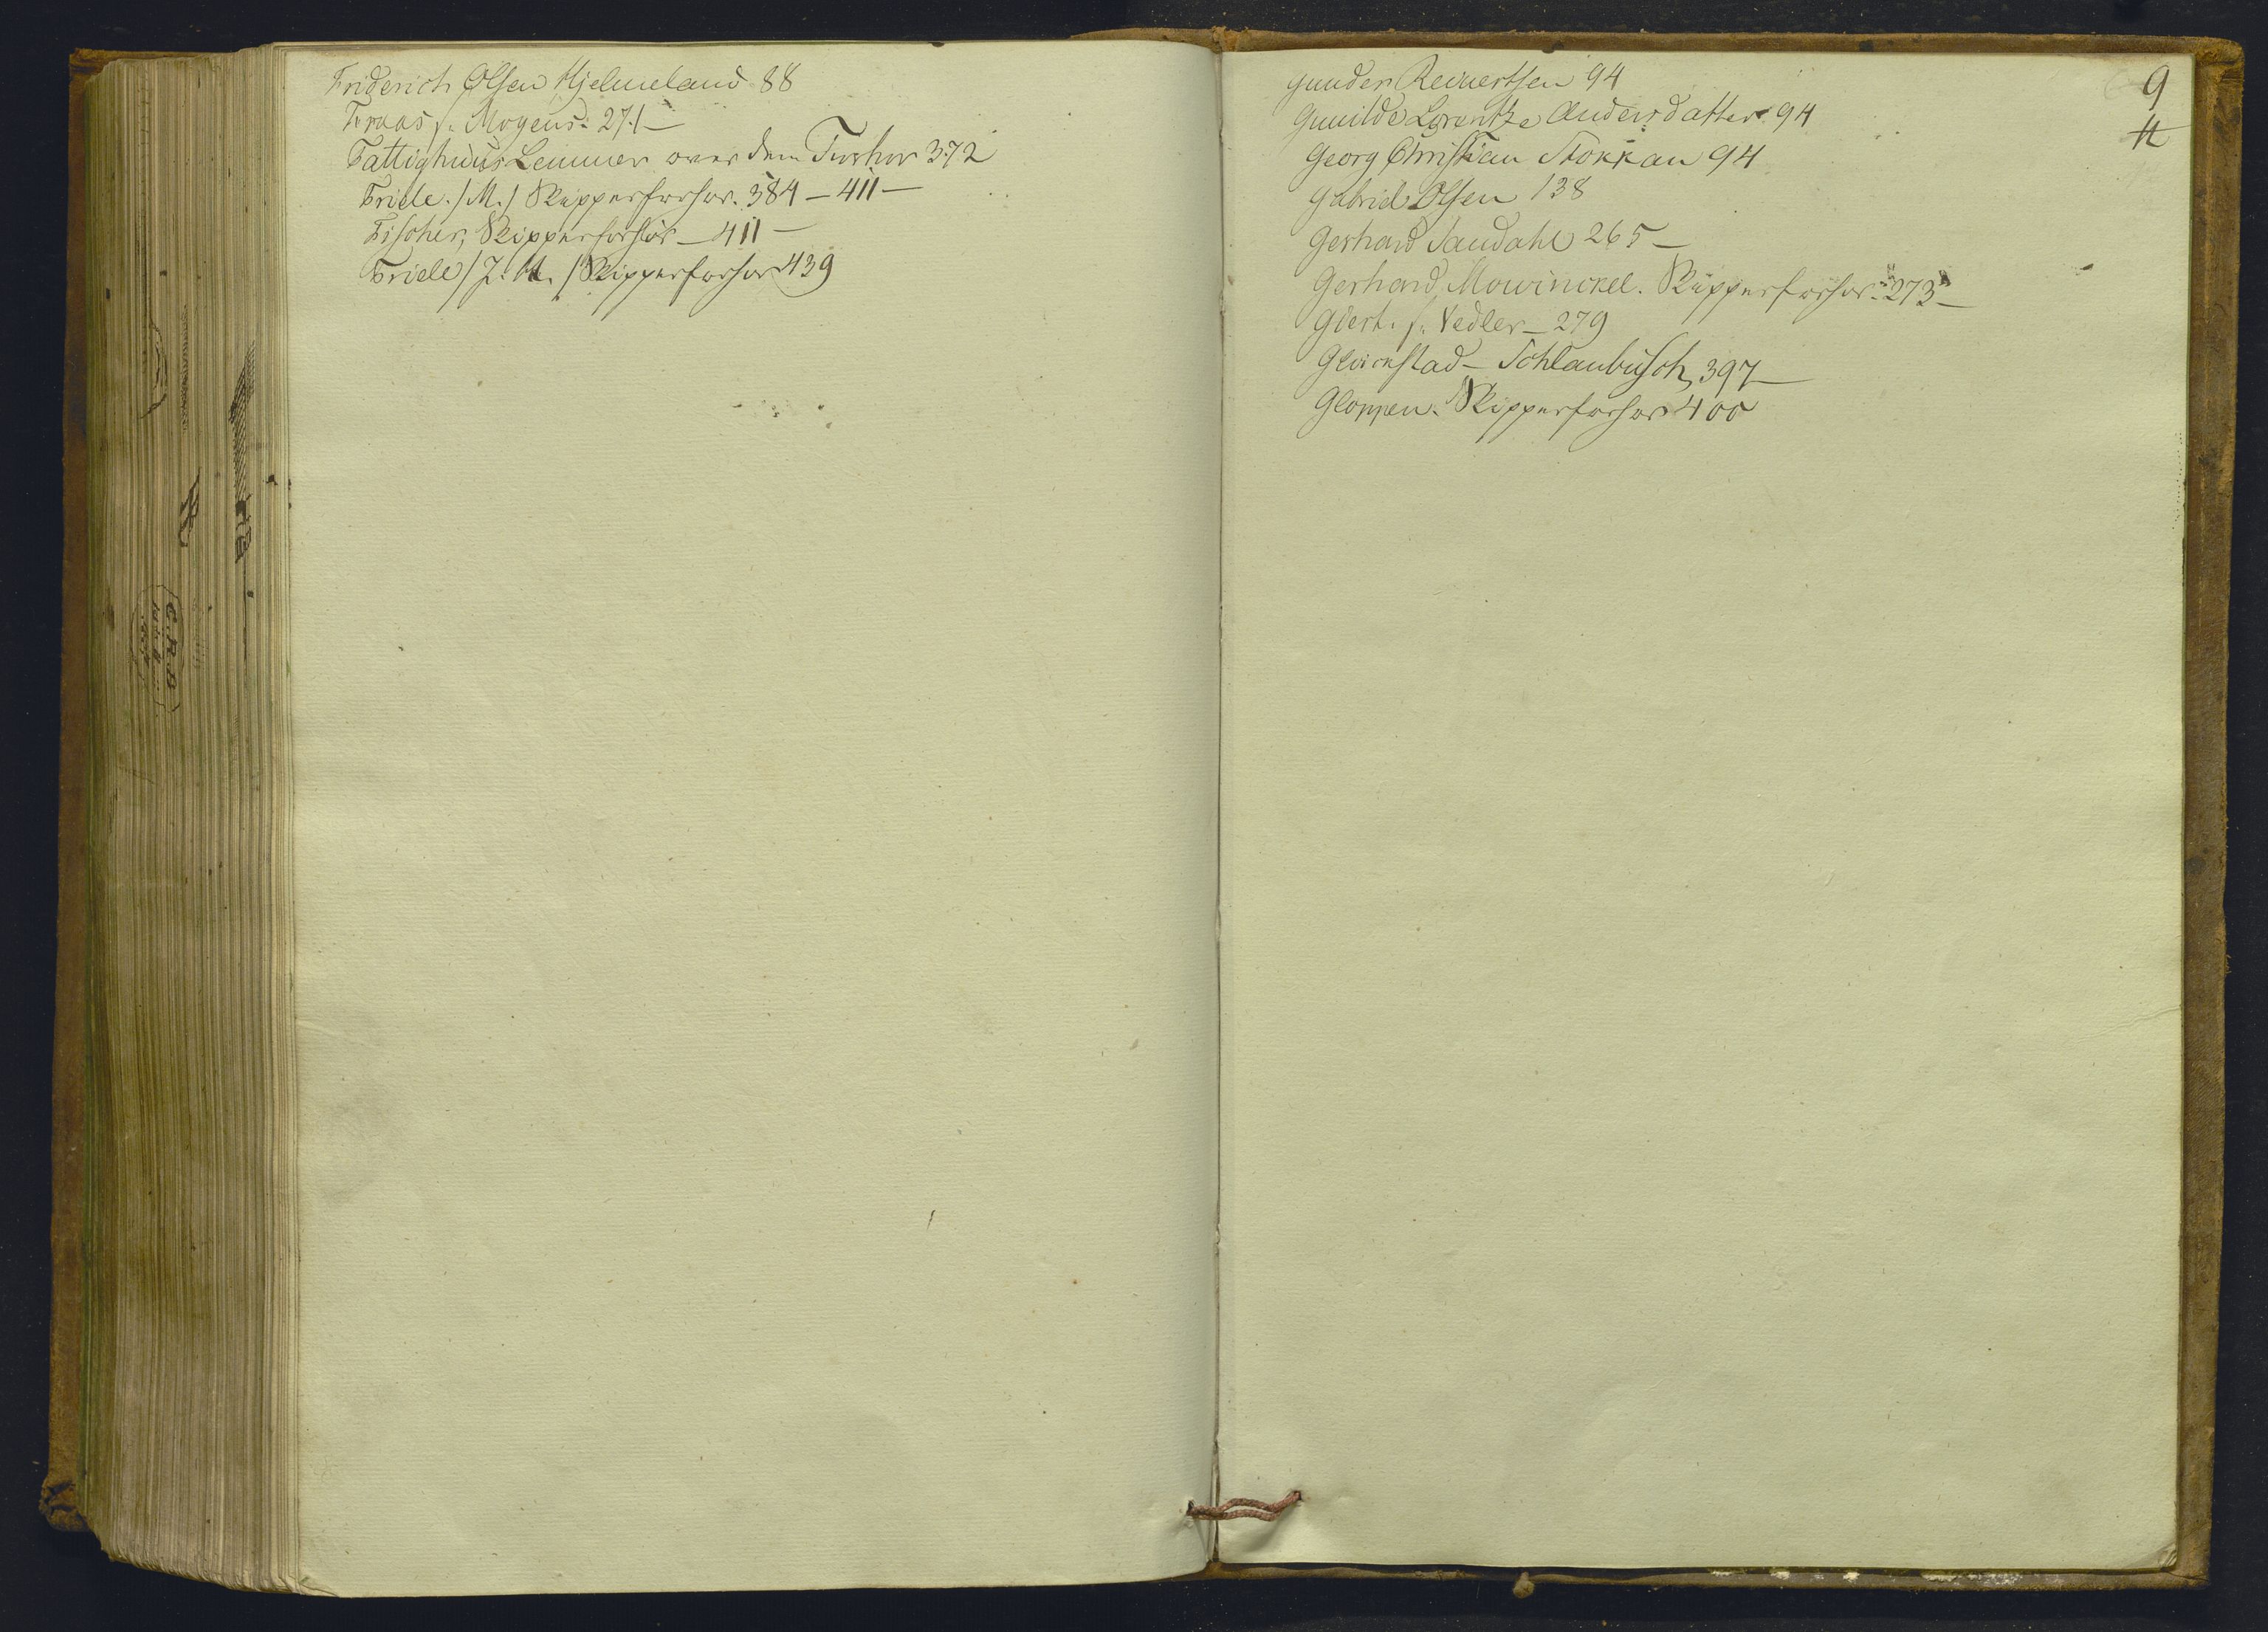 Friderich Olsen Hjelmeland 88
Fraas f. Mogens: 271 —
Fattighuus Lemmer over dem Forhør 372
Friele. /M./ Skipperforhør. 384 — 411 —
Fischer, Skipperforhør — 411 —
Friele / J. M. / Skipperforhør 439
Gunder Reinertsen 94
Gunilde Lorentze Andersdatter 94
Georg Christian Stokkan 94
Gabriel Olsen 138
Gerhard Sandahl 265 —
Gerhard Mowinckel. Skipperforhør: 273 —
Giert. f. Vedler — 279
Glückstad — Schlanbusch, 397 —
Gloppen. Skipperforhør 400
9